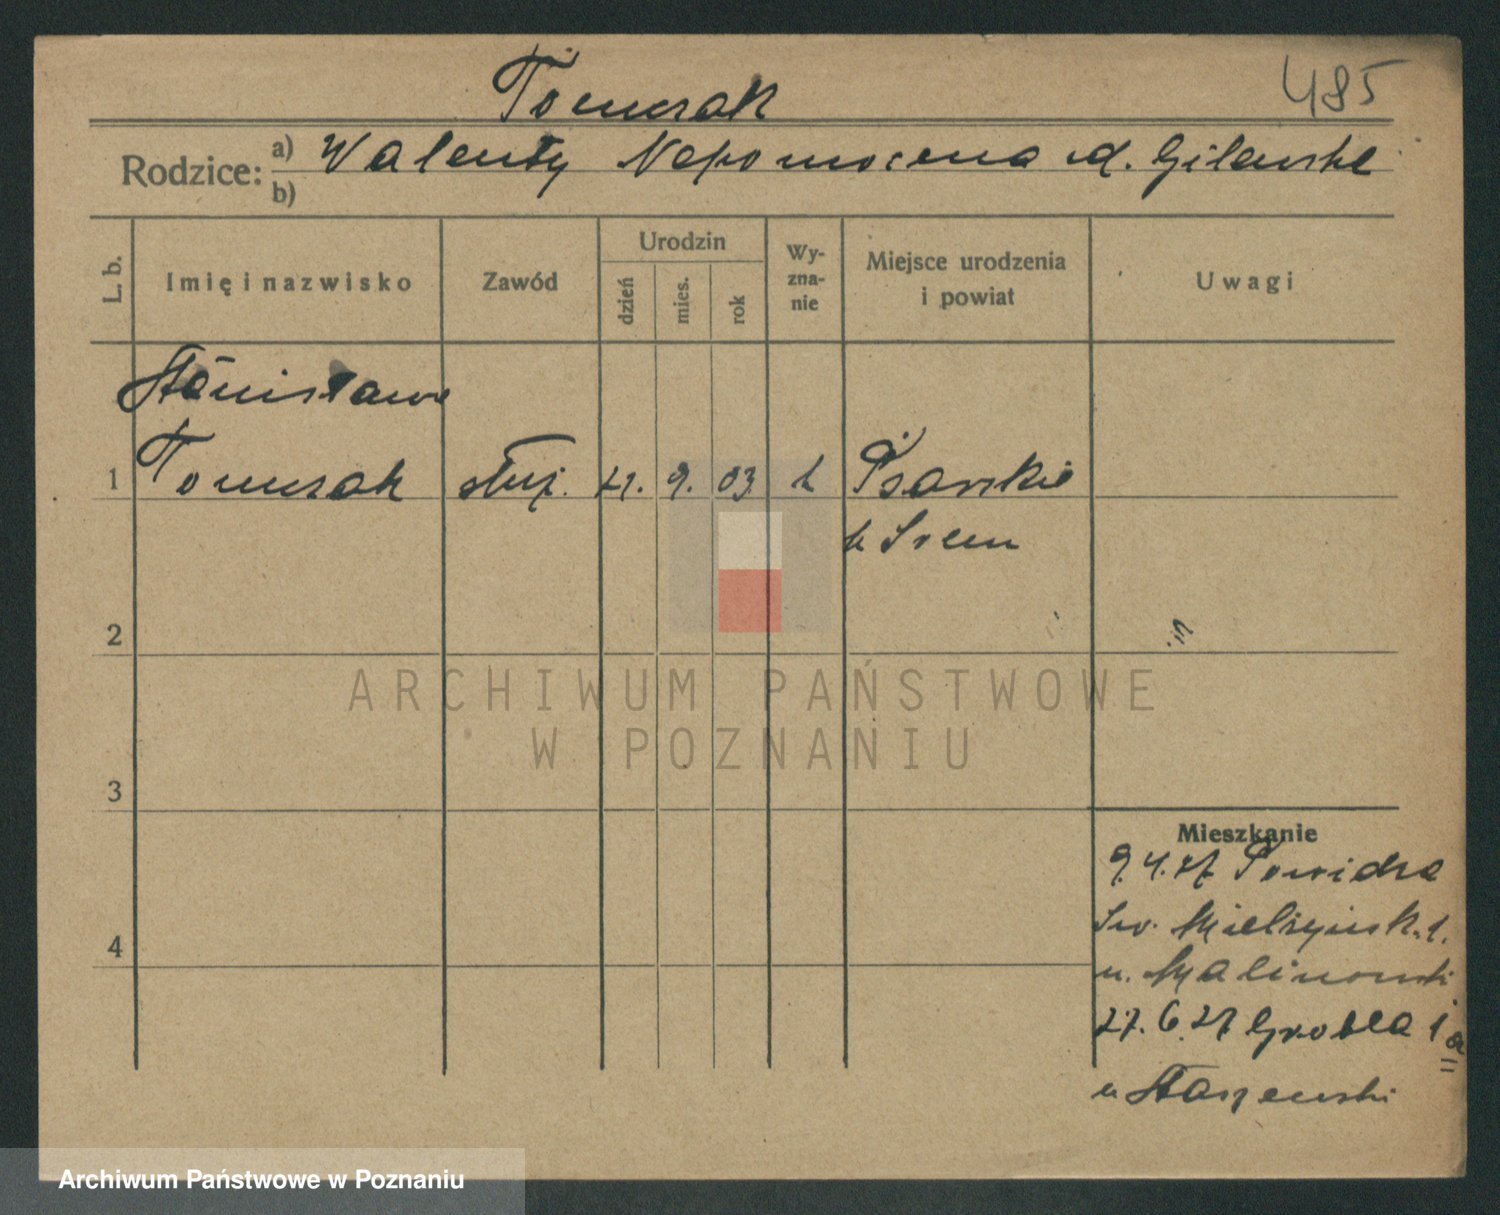 Tomczak
485
Rodzice: a) Walenty Nepomocena d. Gilewska
b)
L. b.
Imię i nazwisko
Zawód
Urodzin
dzień
mies.
rok
Wy-
zna-
nie
Miejsce urodzenia
i powiat
Uwagi
Stanisława
1 Tomczak służ. 9. 03 k Psarskie
Śrem
2
3
4
Mieszkanie
9.4.27 Powidza
Mielżyńsk. 1.
u. Malinowski
27.6.27 Grobla 1 a
u Staszewski
ARCHIWUM PAŃSTWOWE
W POZNANIU
Archiwum Państwowe w Poznaniu